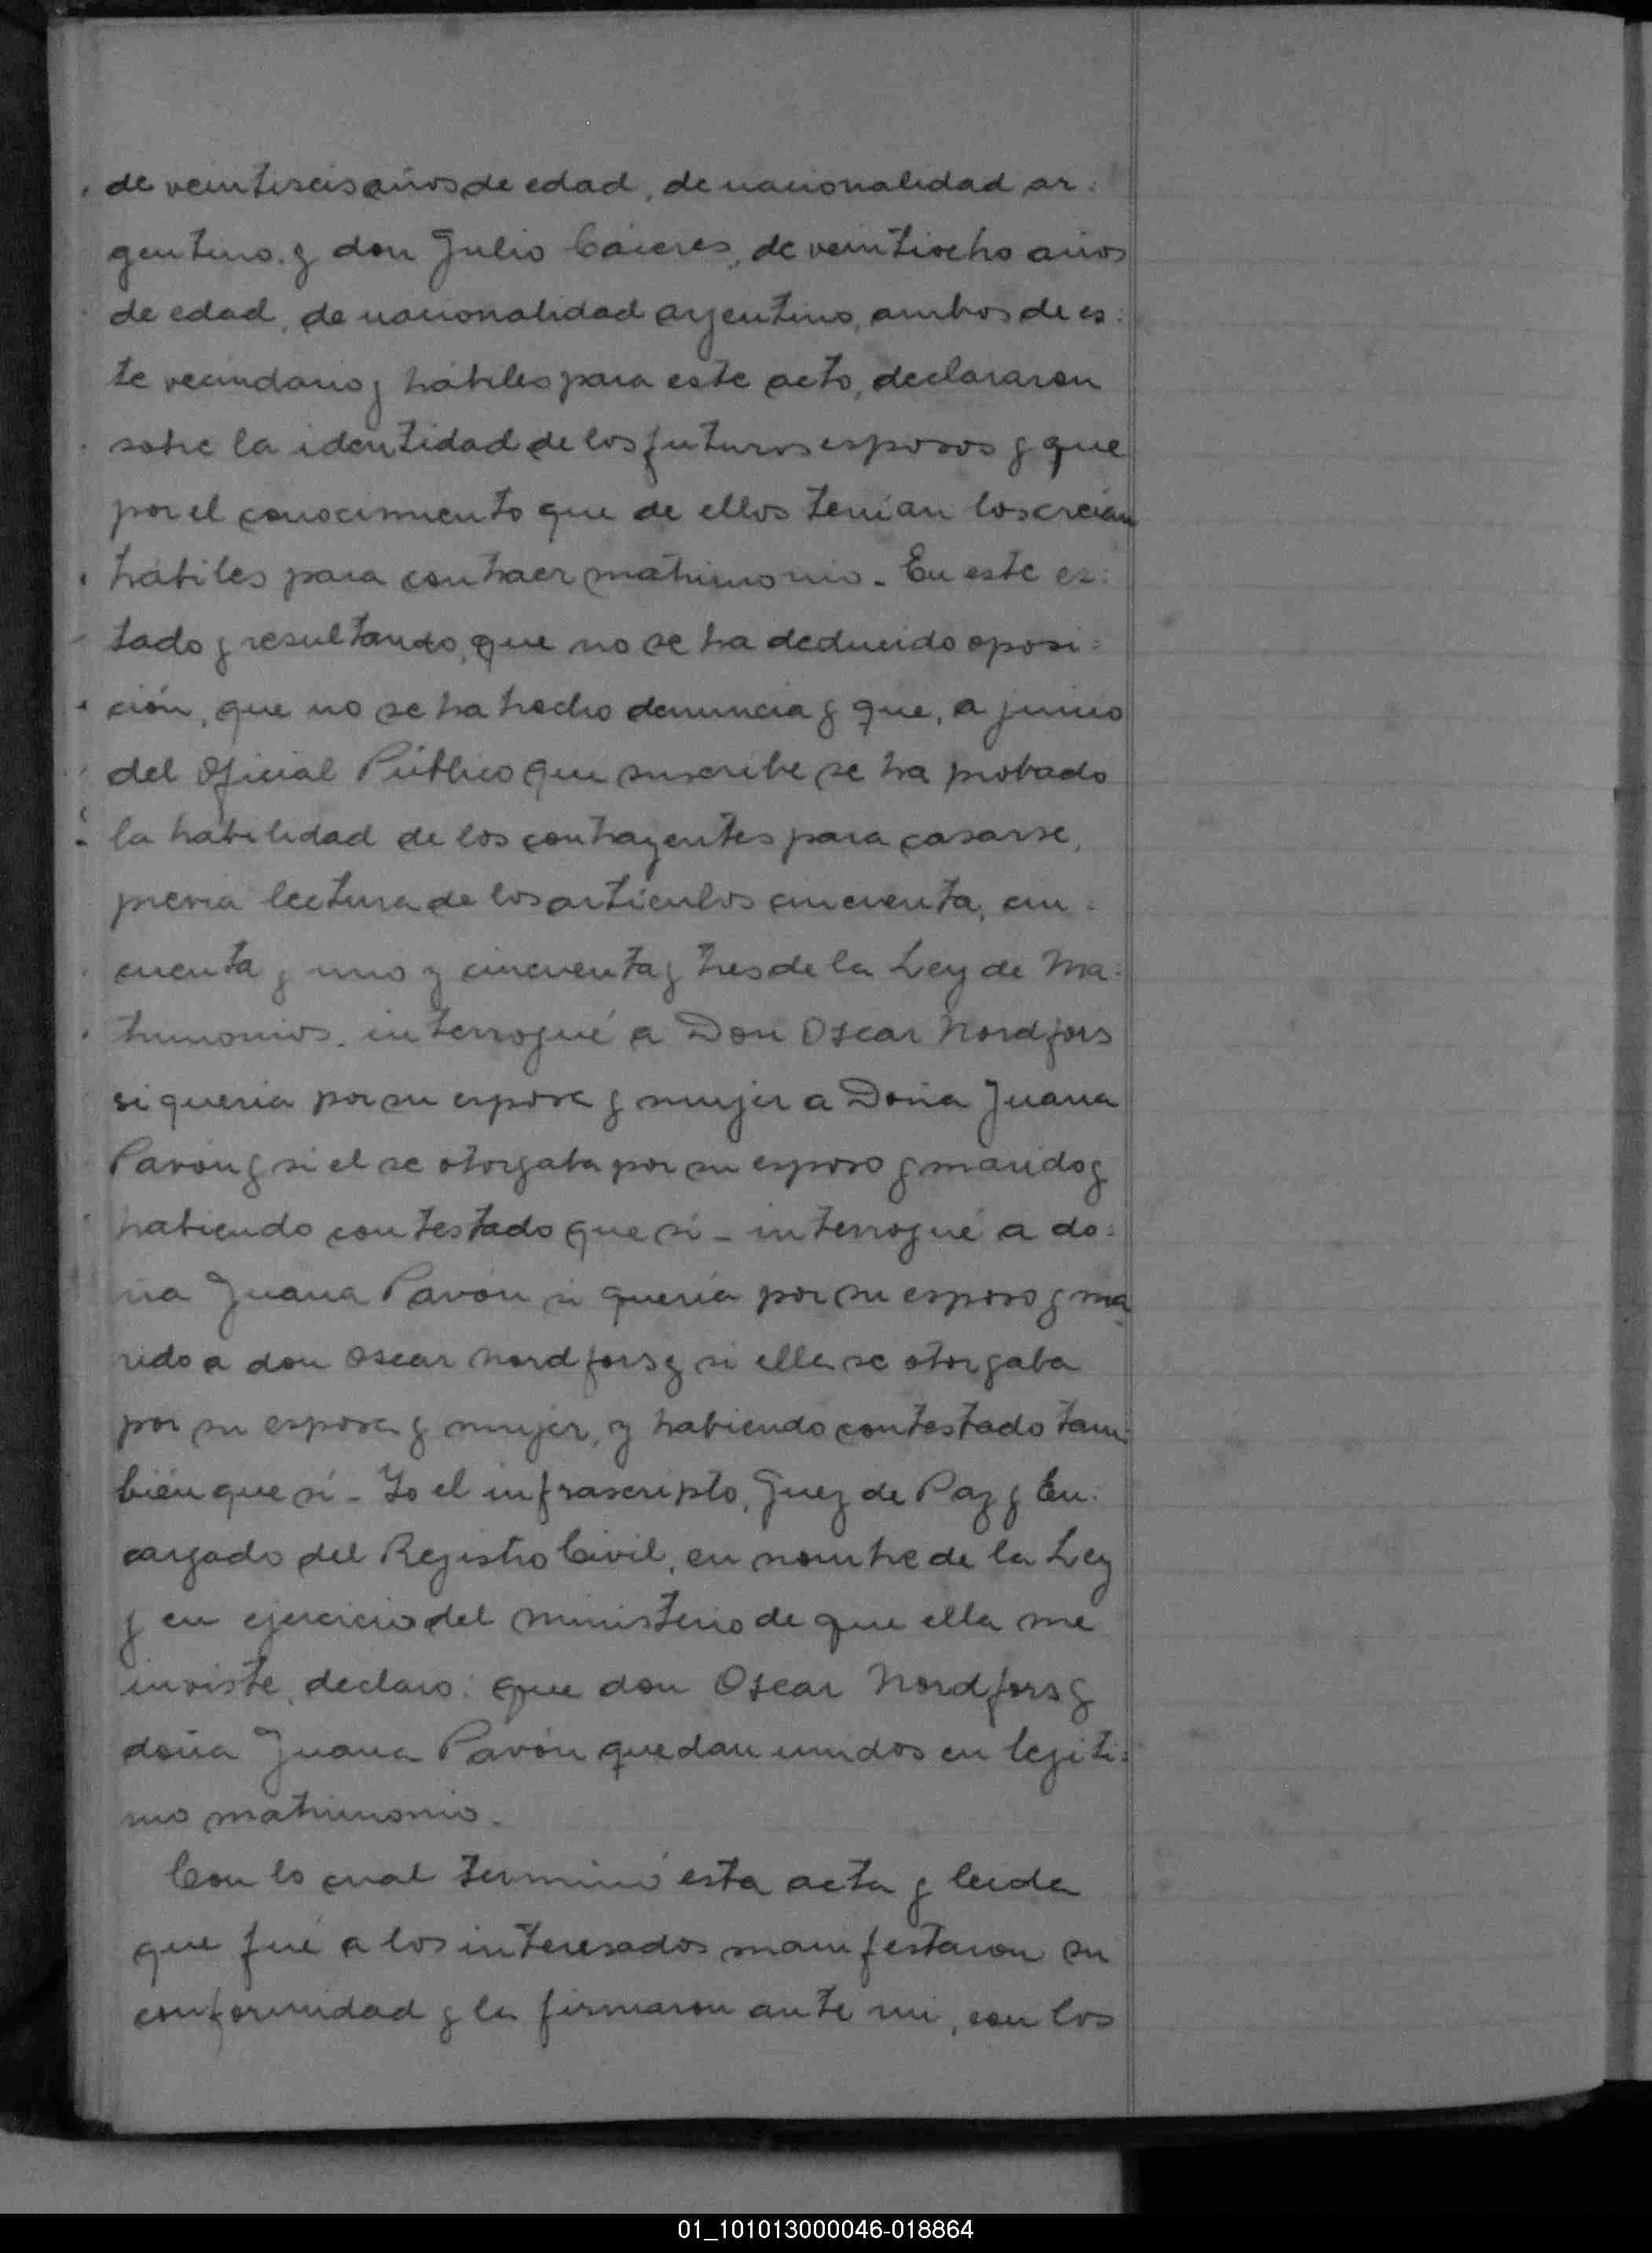 de veintiseis años de edad, de nacionalidad ar:
gentino. y don Julio Cáceres, de veintiocho años
de edad, de nacionalidad argentino, ambos de es:
te vecindario y hábiles para este acto, declararon
sobre la identidad de los futuros esposos y que
por el conocimiento que de ellos tenían los creían
hábiles para contraer matrimonio - En este es:
tado y resultando, que no se ha deducido oposi:
ción, que no se ha hecho denuncia y que, a juicio
del Oficial Público que suscribe se ha probado
la habilidad de los contrayentes para casarse,
previa lectura de los artículos cincuenta, cin:
cuenta y uno y cincuenta y tres de la Ley de Ma:
trimonios, interrogué a Don Oscar Nordfors
si quería por su esposa y mujer a Doña Juana
Pavón y si el se otorgaba por su esposo y marido y
habiendo contestado que sí - interrogué a do:
ña Juana Pavón si quería por su esposo y ma
rido a don Oscar Nordfors y si ella se otorgaba
por su esposa y mujer, y habiendo contestado tam:
bién que sí - Yo el infrascripto, Juez de Paz y En:
cargado del Registro Civil, en nombre de la Ley
y en ejercicio del ministerio de que ella me
inviste, declaro: que don Oscar Nordfors y
doña Juana Pavón quedan unidos en legíti:
mo matrimonio.
Con lo cual terminó esta acta y leida
que fué a los interesados manifestaron su
conformidad y la firmaron ante mi, con los
01_101013000046-018864